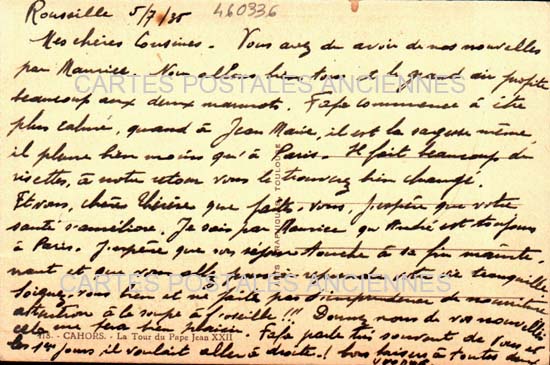 Rouseille 5/7/35 460336
Mes chères Cousines. Vous avez dû avoir de nos nouvelles
par Maurice. Nous allons bien tous et le grand air profite
beaucoup aux deux marmots. Fafa commence à être
plus calme, quand à Jean Marie, il est la sagesse même,
il pleure bien moins qu'à Paris. Il fait beaucoup de
risettes, à notre retour vous le trouverez bien changé.
Et vous, chère Thérèse que faites-vous, j'espère que votre
santé s'améliore. Je sais par Maurice que André est toujours
à Paris. J'espère que son séjour touche à sa fin mainte-
nant et que vous allez pouvoir reprendre votre vie tranquille
Soignez-vous bien et ne faite pas d'imprudence de nourriture
attention à la soupe à l'oseille !!! Donnez nous de vos nouvelles
cela me fera bien plaisir. Fafa parle très souvent de vous et
les 1ers jours il voulait aller à droite! bons baisers à toutes deux
CARTES POSTALES ANCIENNES
CARTES POSTALES ANCIENNES
TOULOUSE
418. - CAHORS. - La Tour du Pape Jean XXII